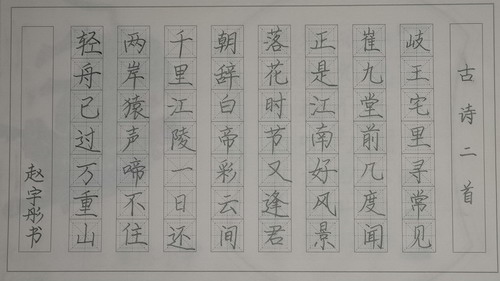 古诗二首
岐王宅里寻常见
崔九堂前几度闻
正是江南好风景
落花时节又逢君
朝辞白帝彩云间
千里江陵一日还
两岸猿声啼不住
轻舟已过万重山
赵宇彤书